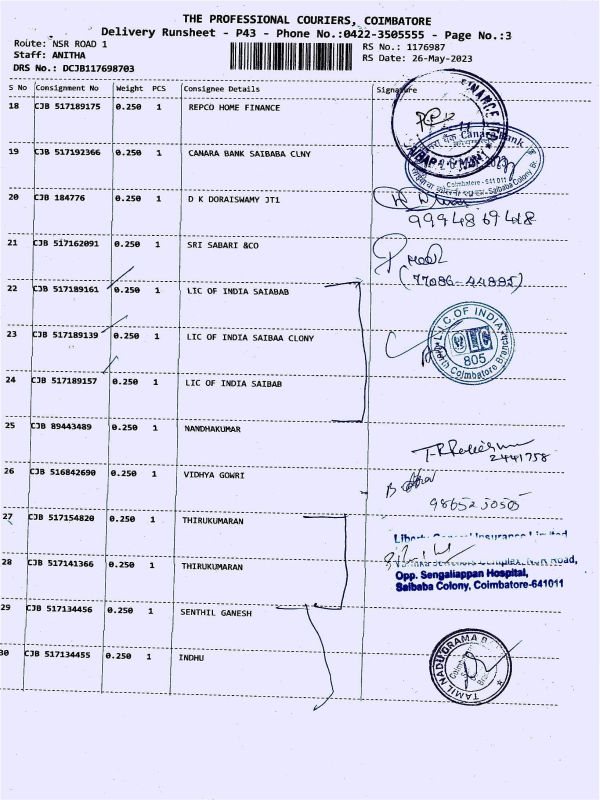 THE PROFESSIONAL COURIERS, COIMBATORE
Delivery Runsheet - P43 - Phone No.:0422-3505555 - Page No.:3
Route: NSR ROAD 1
Staff: ANITHA
DRS No.: DCJB117698703
RS No.: 1176987
RS Date: 26-May-2023
S No Consignment No Weight PCS Consignee Details Signature
18 CJB 517189175 0.250 1 REPCO HOME FINANCE
19 CJB 517192366 0.250 1 CANARA BANK SAIBABA CLNY
Canara Bank
Coimbatore - 641 011
Saibaba Colony Br.
20 CJB 184776 0.250 1 D K DORAISWAMY JT1
9994869418
21 CJB 517162091 0.250 1 SRI SABARI &CO
(77086-44885)
22 CJB 517189161 0.250 1 LIC OF INDIA SAIABAB
23 CJB 517189139 0.250 1 LIC OF INDIA SAIBAA CLONY
L I C OF INDIA
LIC
805
Coimbatore Branch
24 CJB 517189157 0.250 1 LIC OF INDIA SAIBAB
25 CJB 89443489 0.250 1 NANDHAKUMAR
2441758
26 CJB 516842690 0.250 1 VIDHYA GOWRI
9865230505
27 CJB 517154820 0.250 1 THIRUKUMARAN
Liberty General Insurance Limited
28 CJB 517141366 0.250 1 THIRUKUMARAN
Road,
Opp. Sengaliappan Hospital,
Saibaba Colony, Coimbatore-641011
29 CJB 517134456 0.250 1 SENTHIL GANESH
30 CJB 517134455 0.250 1 INDHU
TAMIL NADU GRAMA B